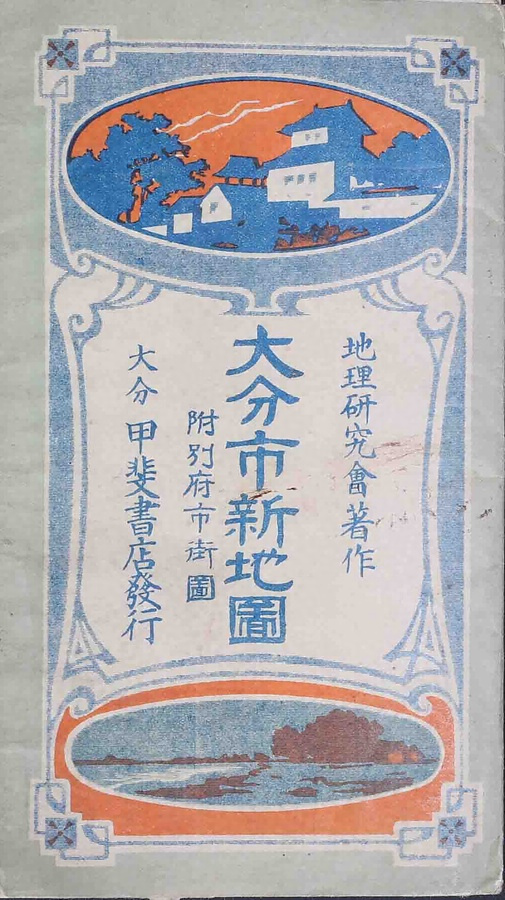 地理研究會著作
大分市新地圖
附別府市街圖
大分 甲斐書店發行